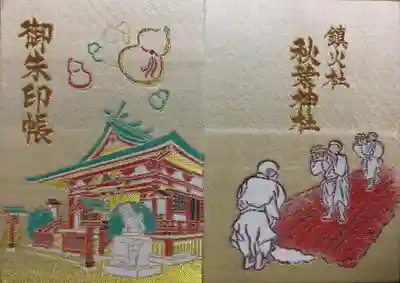 鎮火社
秋葉神社
御朱印帳